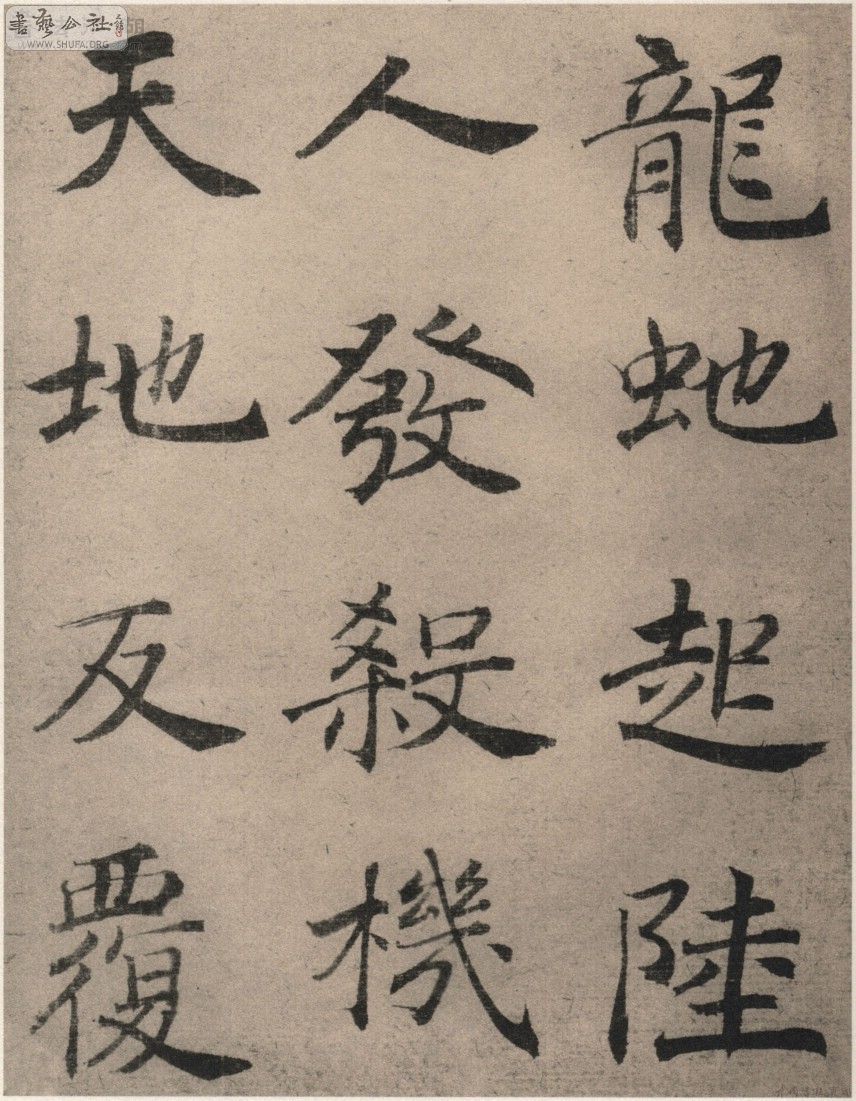 龍虵起陸
人發殺機
天地反覆
書藝公社
WWW.SHUFA.ORG